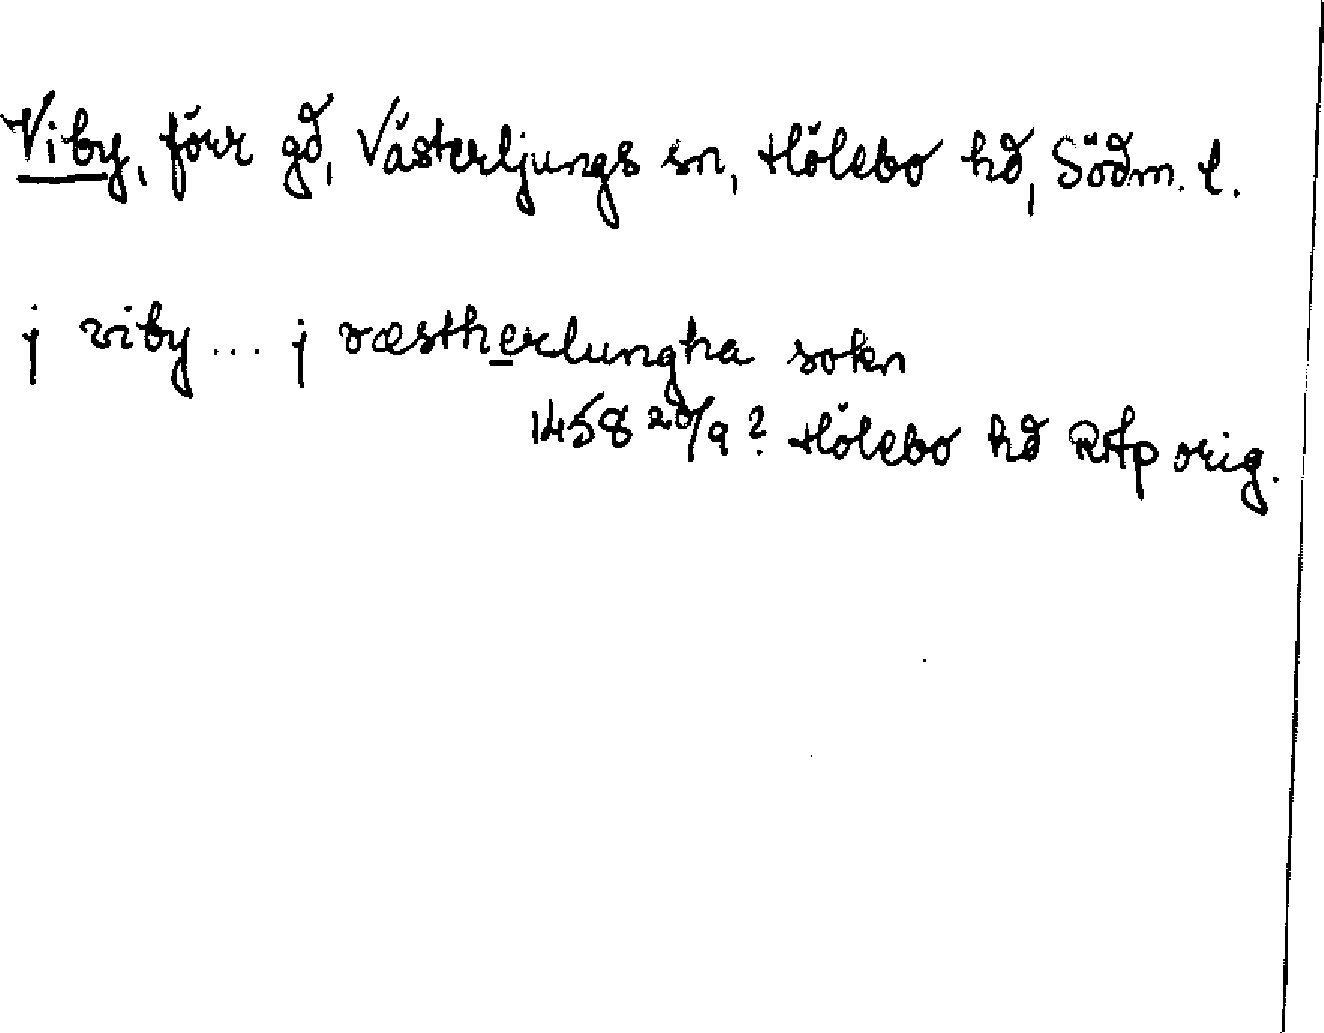 Viby, förr gd, Västerljungs sn, Hölebo hd, Södm. l.
j viby ... j væstherlungha sokn
1458 20/9? Hölebo hd RAp orig.